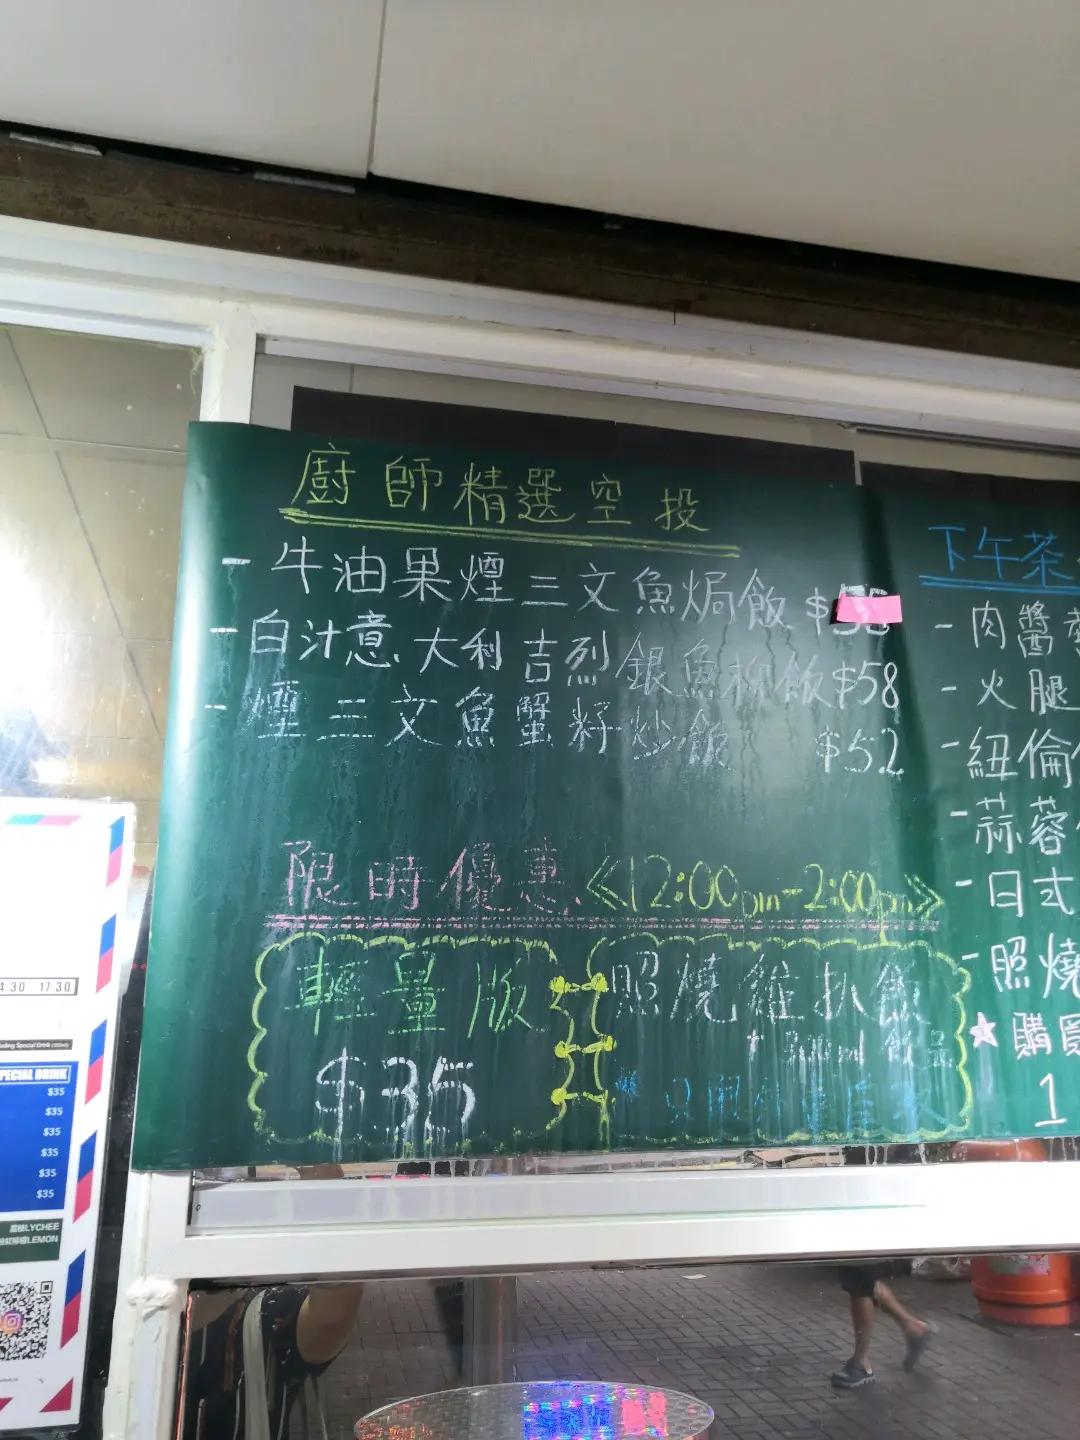 廚師精選空投
- 牛油果煙三文魚焗飯 $
- 白汁意大利吉烈銀魚柳飯 $58
- 煙三文魚蟹籽炒飯 $52
限時優惠 《12:00pm-2:00pm》
輕量版
$35
照燒雞扒飯
只限外賣自取
下午茶
- 肉醬
- 火腿
- 紐倫
- 蒜蓉
- 日式
- 照燒
★ 購買
1
4 30 17 30
uding Special Drink
PECIAL DRINK
$35
$35
$35
$35
$35
$35
荔枝LYCHEE
檸檬LEMON